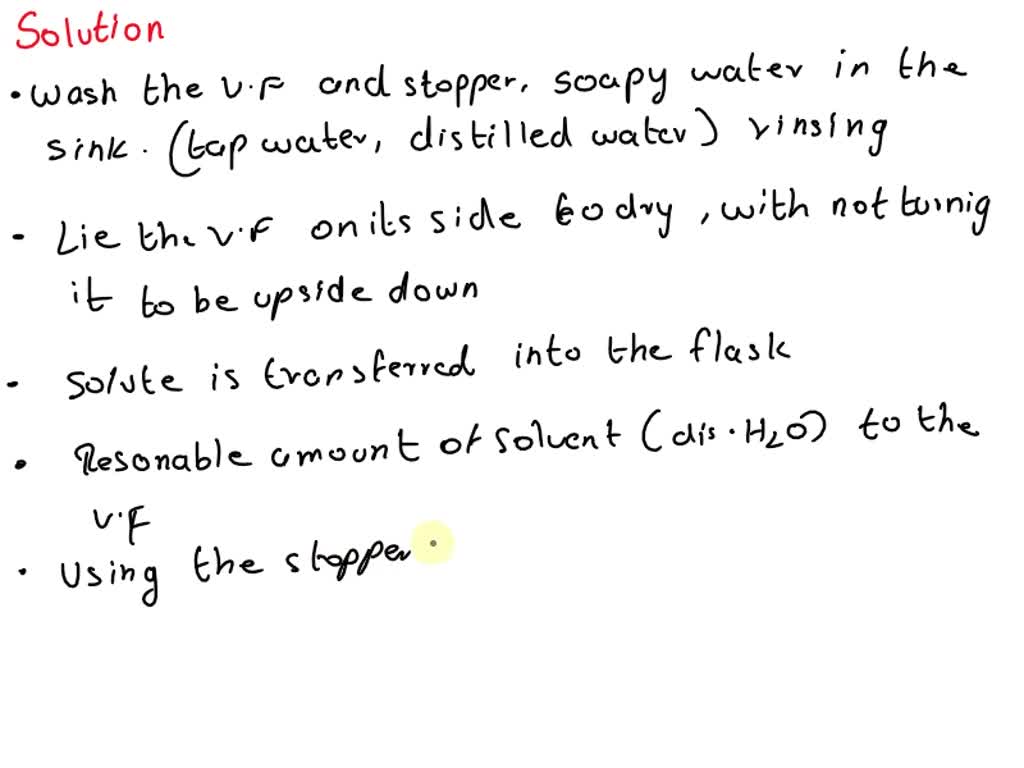 Solution
• Wash the V.F and stopper, soapy water in the
sink. (tap water, distilled water) rinsing
- Lie the V.F on its side to dry, with not turnig
it to be upside down
- Solute is transferred into the flask
• Resonable amount of solvent (dis. H2O) to the
V.F
• Using the stopper